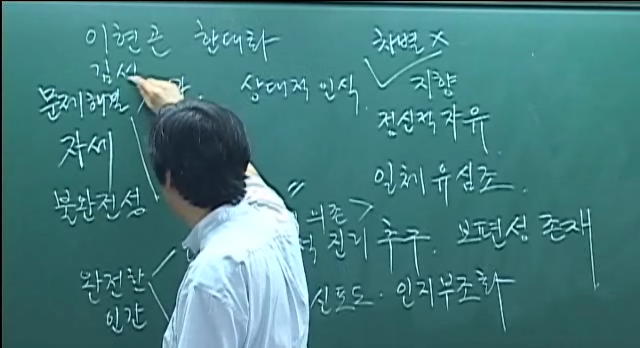 이현곤 한대화 차별 X
김성
문제해결 상대적 인식. 지향
정신적 자유
자세
일체유심조.
불완전성 의존 >
진리 추구. 보편성 존재
완전한
인간 신뢰도·인지부조화